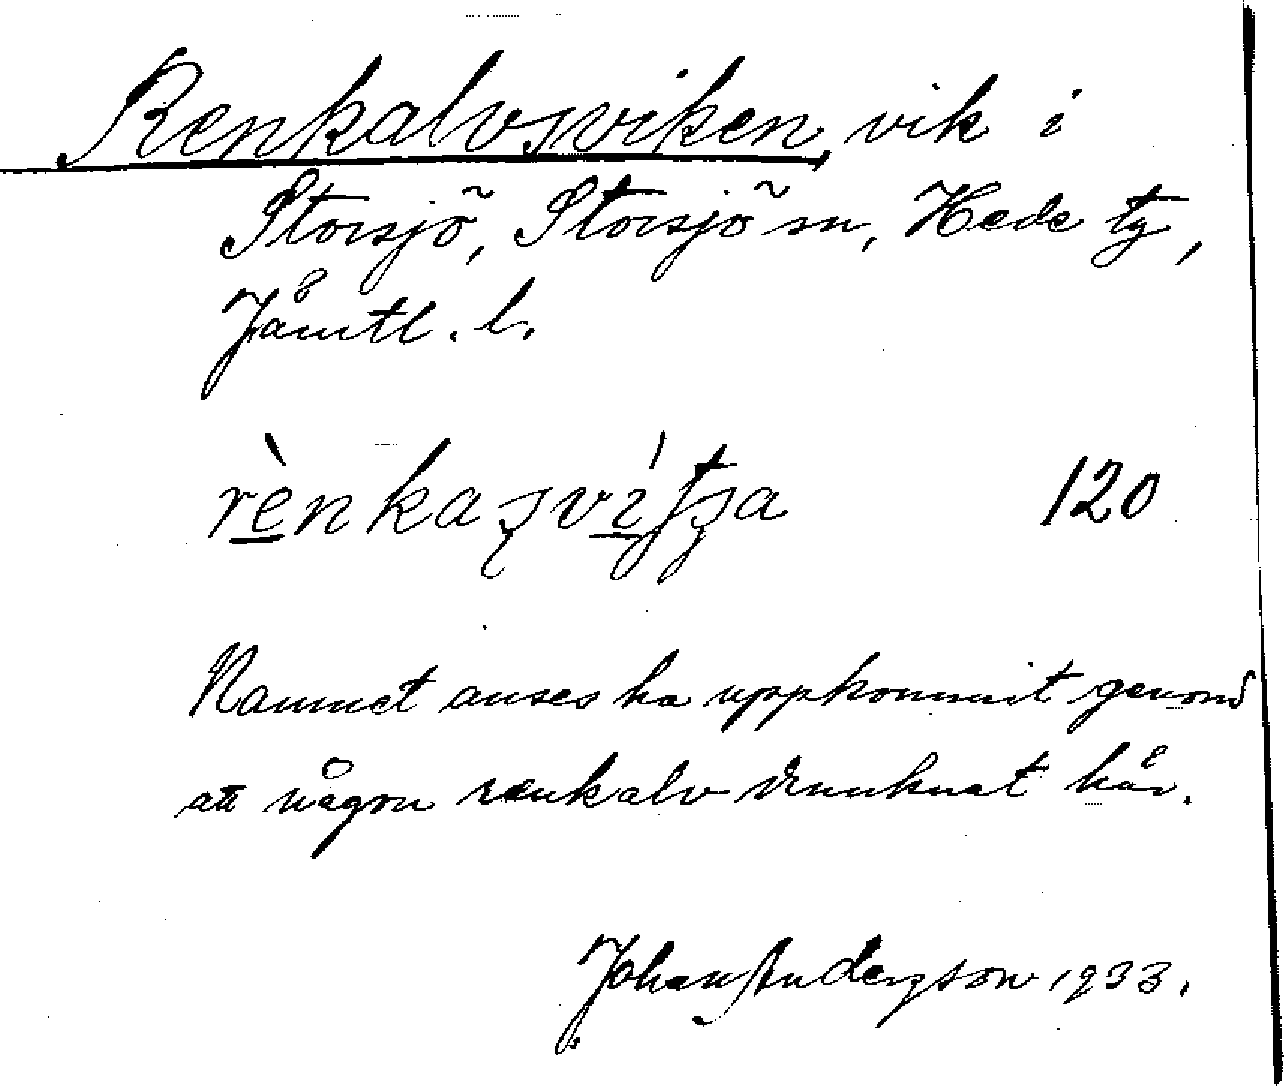 Renkalvsviken, vik i
Storsjö, Storsjö sn, Hede tg,
Jämtl. l.
rènkaʂvítʂa 120
Namnet anses ha uppkommit genom
att någon renkalv drunknat här.
Johan Anderzson 1933.